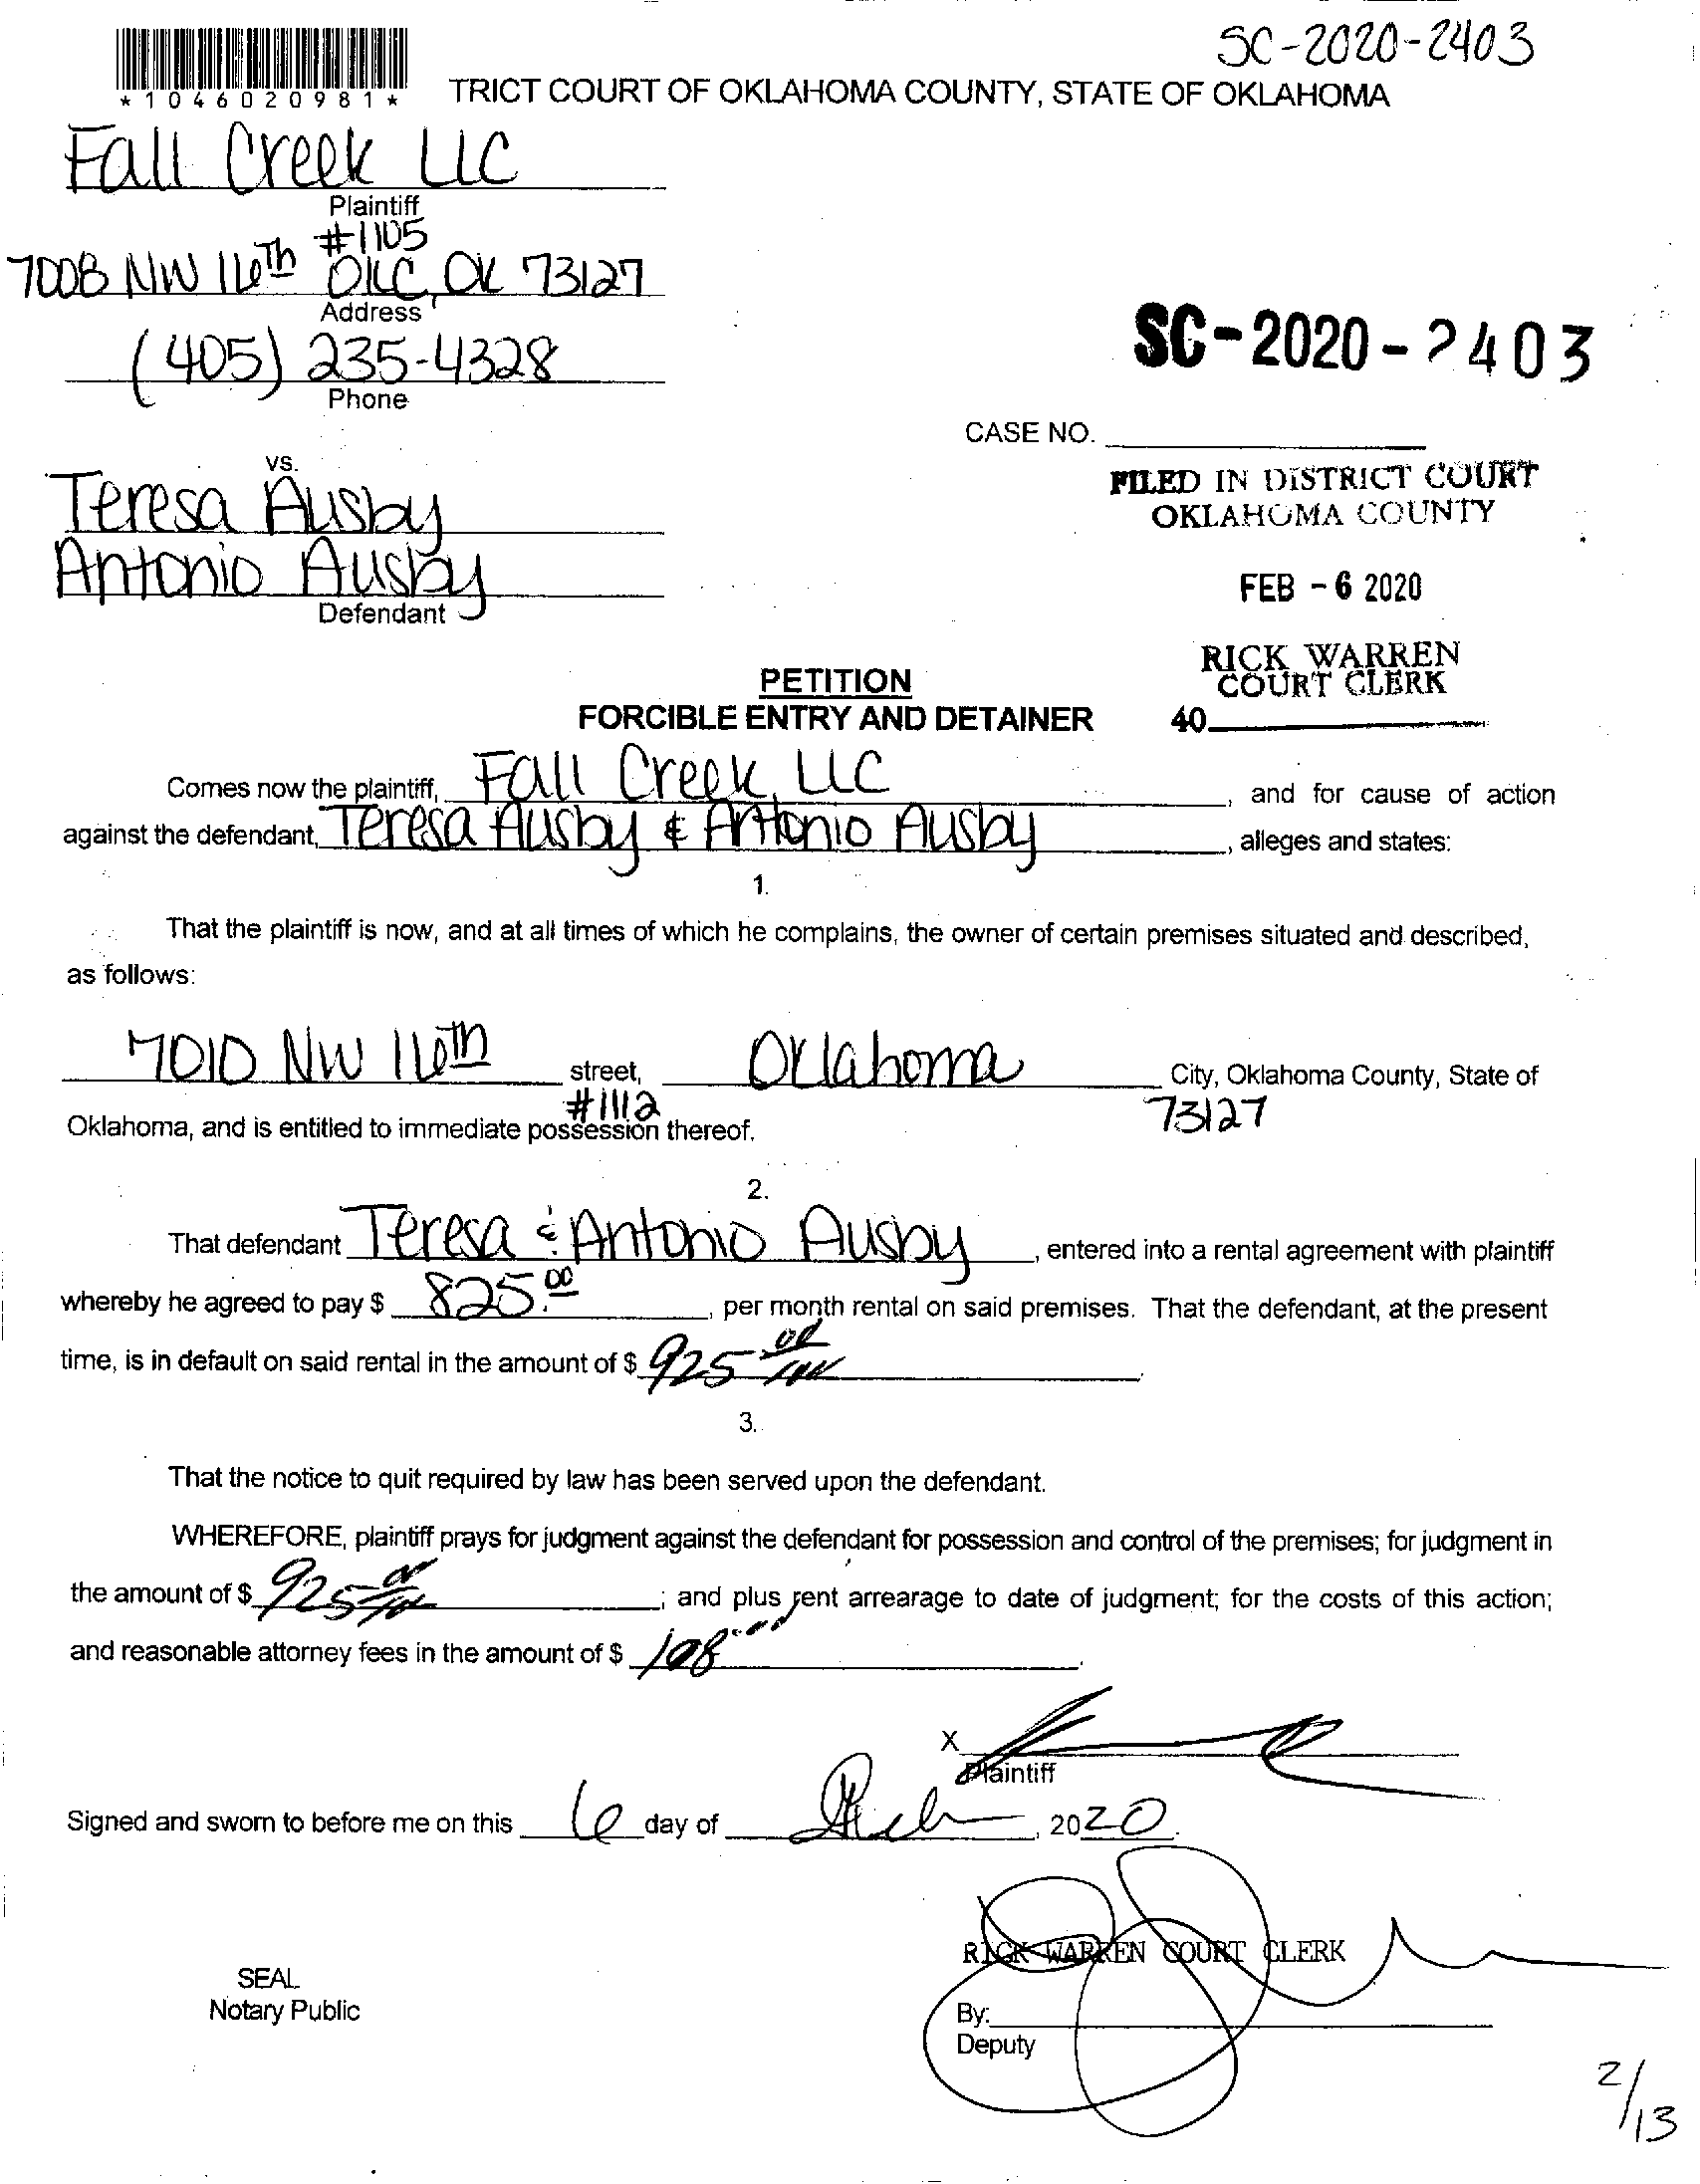 SC-2020-2403
*1046020981*
TRICT COURT OF OKLAHOMA COUNTY, STATE OF OKLAHOMA
Fall Creek LLC
Plaintiff
#1105
7008 NW 16th OKC, OK 73127
Address
(405) 235-4328
Phone
SC-2020-2403
CASE NO.
vs.
Teresa Ausby
Antonio Ausby
Defendant
FILED IN DISTRICT COURT
OKLAHOMA COUNTY
FEB - 6 2020
RICK WARREN
COURT CLERK
40
PETITION
FORCIBLE ENTRY AND DETAINER
Comes now the plaintiff, Fall Creek, LLC, and for cause of action
against the defendant, Teresa Ausby & Antonio Ausby, alleges and states:
1.
That the plaintiff is now, and at all times of which he complains, the owner of certain premises situated and described,
as follows:
7010 NW 16th street, Oklahoma City, Oklahoma County, State of
#1112 73127
Oklahoma, and is entitled to immediate possession thereof.
2.
That defendant Teresa & Antonio Ausby, entered into a rental agreement with plaintiff
whereby he agreed to pay $ 825.00, per month rental on said premises. That the defendant, at the present
time, is in default on said rental in the amount of $ 925
3.
That the notice to quit required by law has been served upon the defendant.
WHEREFORE, plaintiff prays for judgment against the defendant for possession and control of the premises; for judgment in
the amount of $ 925; and plus rent arrearage to date of judgment; for the costs of this action;
and reasonable attorney fees in the amount of $ 108.
X
Plaintiff
Signed and sworn to before me on this 6 day of Feb, 2020.
RICK WARREN COURT CLERK
SEAL
Notary Public
By:
Deputy
2/13